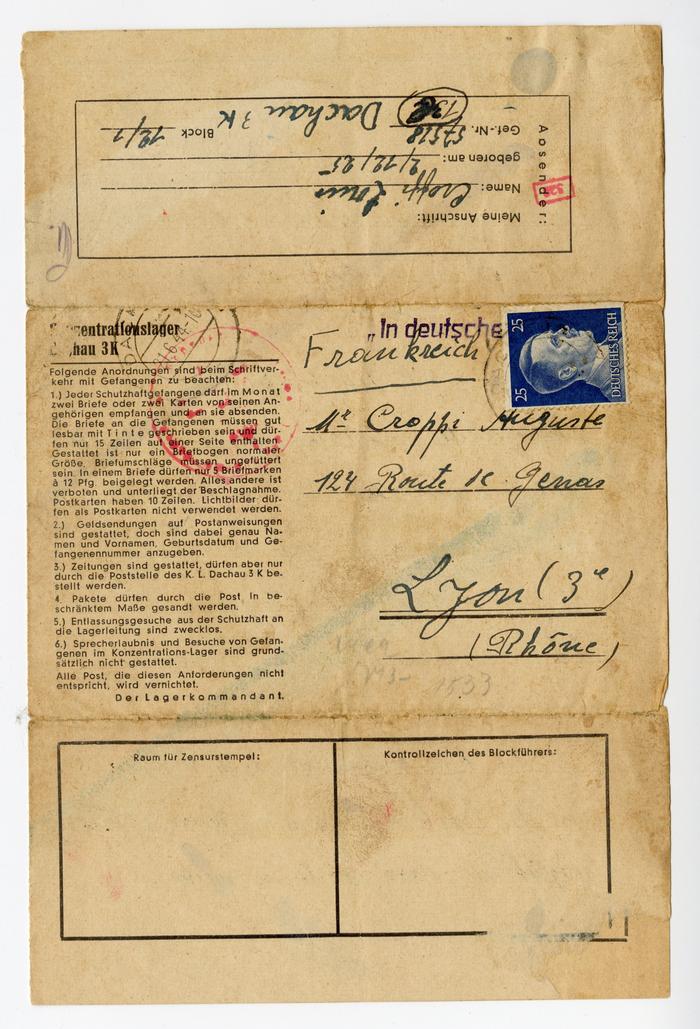 Absender:
Meine Anschrift:
Name: Croppi Louis
geboren am: 2/12/25
Gef.-Nr. 57518 Block 12/1
Dachau 3 K
Konzentrationslager
Dachau 3K
Folgende Anordnungen sind beim Schriftver-
kehr mit Gefangenen zu beachten:
1.) Jeder Schutzhaftgefangene darf im Monat
zwei Briefe oder zwei Karten von seinen An-
gehörigen empfangen und an sie absenden.
Die Briefe an die Gefangenen müssen gut
lesbar mit Tinte geschrieben sein und dür-
fen nur 15 Zeilen auf einer Seite enthalten.
Gestattet ist nur ein Briefbogen normaler
Größe. Briefumschläge müssen ungefüttert
sein. In einem Briefe dürfen nur 5 Briefmarken
à 12 Pfg. beigelegt werden. Alles andere ist
verboten und unterliegt der Beschlagnahme.
Postkarten haben 10 Zeilen. Lichtbilder dür-
fen als Postkarten nicht verwendet werden.
2.) Geldsendungen auf Postanweisungen
sind gestattet, doch sind dabei genau Na-
men und Vornamen, Geburtsdatum und Ge-
fangenennummer anzugeben.
3.) Zeitungen sind gestattet, dürfen aber nur
durch die Poststelle des K. L. Dachau 3 K be-
stellt werden.
4. Pakete dürfen durch die Post in be-
schränktem Maße gesandt werden.
5.) Entlassungsgesuche aus der Schutzhaft an
die Lagerleitung sind zwecklos.
6.) Sprecherlaubnis und Besuche von Gefan-
genen im Konzentrations-Lager sind grund-
sätzlich nicht gestattet.
Alle Post, die diesen Anforderungen nicht
entspricht, wird vernichtet.
Der Lagerkommandant.
„In deutsche
25 25
DEUTSCHES REICH
Frankreich
Mr Croppi Auguste
124 Route de Genas
Lyon (3e)
(Rhône)
1833
Raum für Zensurstempel:
Kontrollzeichen des Blockführers: